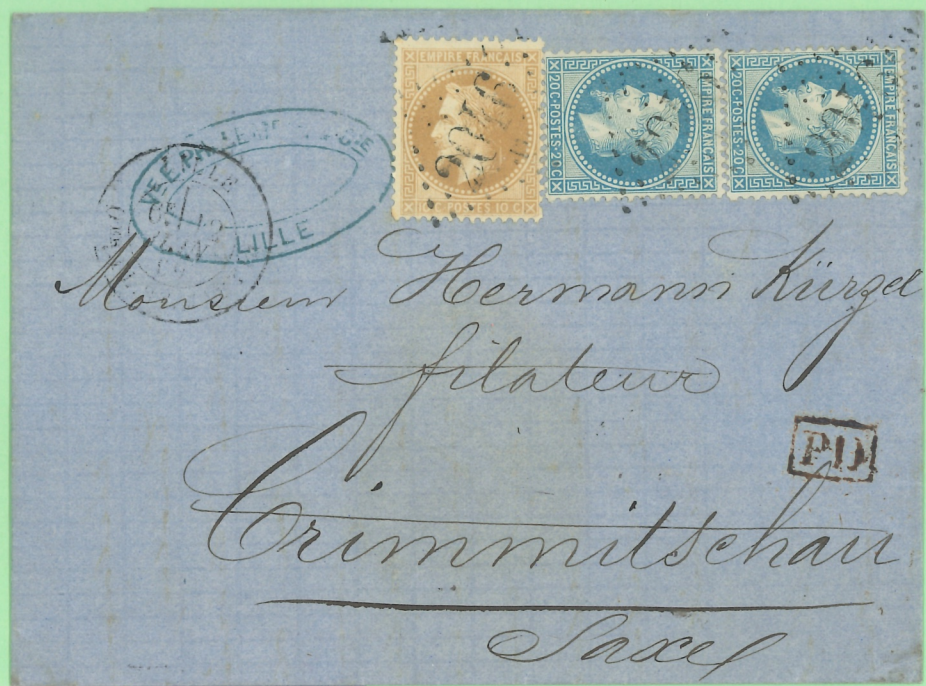 EMPIRE FRANÇAIS
POSTES 10 C
2046
20C-POSTES-20C
EMPIRE FRANÇAIS
20C-POSTES-20C
EMPIRE FRANÇAIS
CIE
LILLE
Monsieur Hermann Kürzel
filateur
PD
Crimmitschau
Saxe